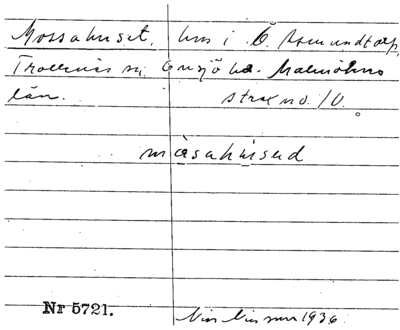 Mossahuset, hus i Ö Asmundtorp,
Trollenäs sn. Onsjö hd. Malmöhus
län. strax no. 10.
mɑ̀sahúsəd
Nr 5721. 1936.